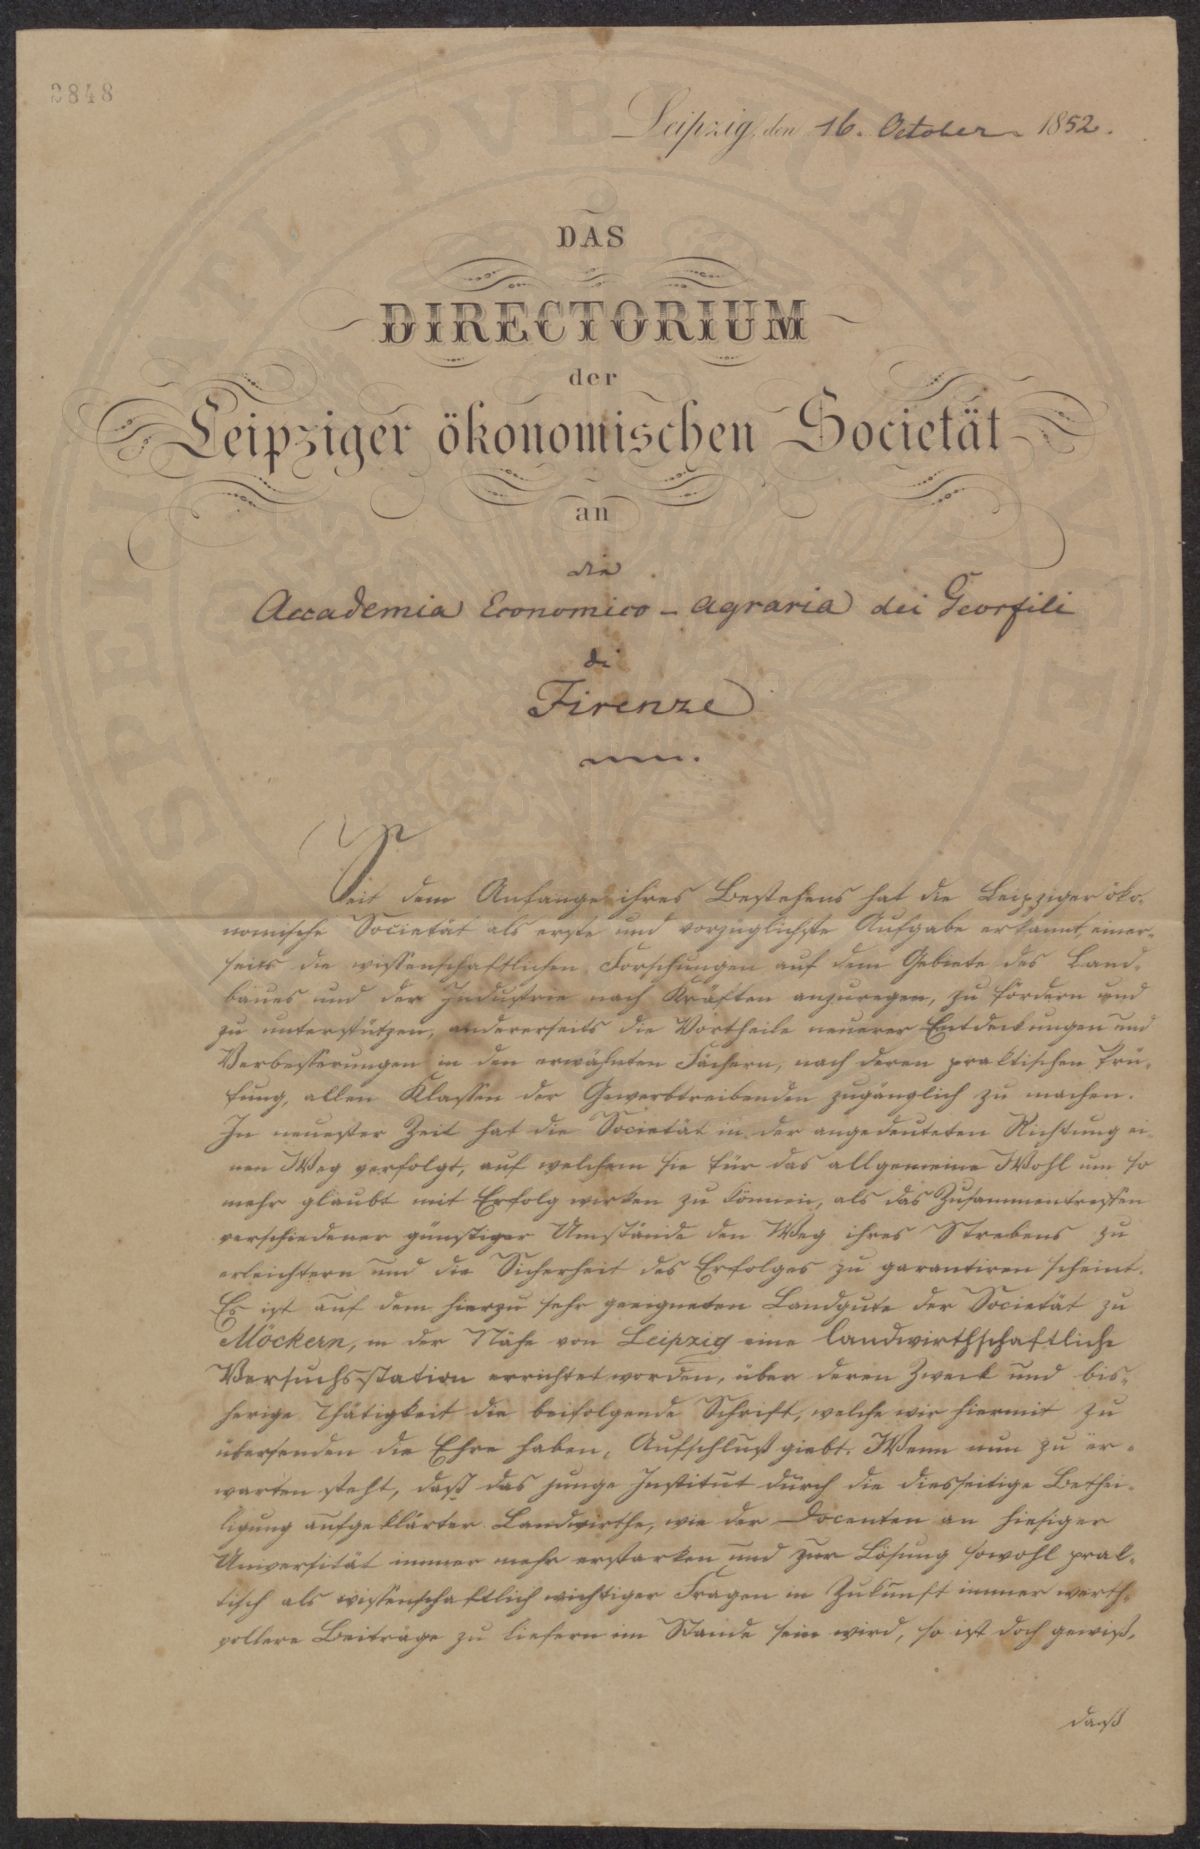 2848
Leipzig, den 16. October 1852.
DAS
DIRECTORIUM
der
Leipziger ökonomischen Societät
an
die
Accademia Economico-agraria dei Georfili
di
Firenze
Seit dem Anfange ihres Bestehens hat die Leipziger öko-
nomische Societät als erste und vorzüglichste Aufgabe erkannt, einer-
seits die wissenschaftlichen Forschungen auf dem Gebiete des Land-
baues und der Industrie nach Kräften anzuregen, zu fördern und
zu unterstützen, andererseits die Vortheile neuerer Entdeckungen und
Verbesserungen in den erwähnten Fächern, nach deren praktischen Prü-
fung, allen Klassen der Gewerbtreibenden zugänglich zu machen.
In neuester Zeit hat die Societät in der angedeuteten Richtung ei-
nen Weg verfolgt, auf welchem sie für das allgemeine Wohl um so
mehr glaubt mit Erfolg wirken zu können, als das Zusammentreffen
verschiedener günstiger Umstände den Weg ihres Strebens zu
erleichtern und die Sicherheit des Erfolges zu garantiren scheint.
Es ist auf dem hierzu sehr geeigneten Landgute der Societät zu
Möckern, in der Nähe von Leipzig eine landwirthschaftliche
Versuchsstation errichtet worden, über deren Zweck und bis-
herige Thätigkeit die beifolgende Schrift, welche wir hiermit zu
übersenden die Ehre haben, Aufschluß giebt. Wenn nun zu er-
warten steht, daß das junge Institut durch die diesseitige Bethei-
ligung aufgeklärter Landwirthe, wie der Docenten an hiesiger
Universität immer mehr erstarken und zur Lösung sowohl prak-
tisch als wissenschaftlich wichtiger Fragen in Zukunft immer werth-
vollere Beiträge zu liefern im Stande sein wird, so ist doch gewiß,
daß